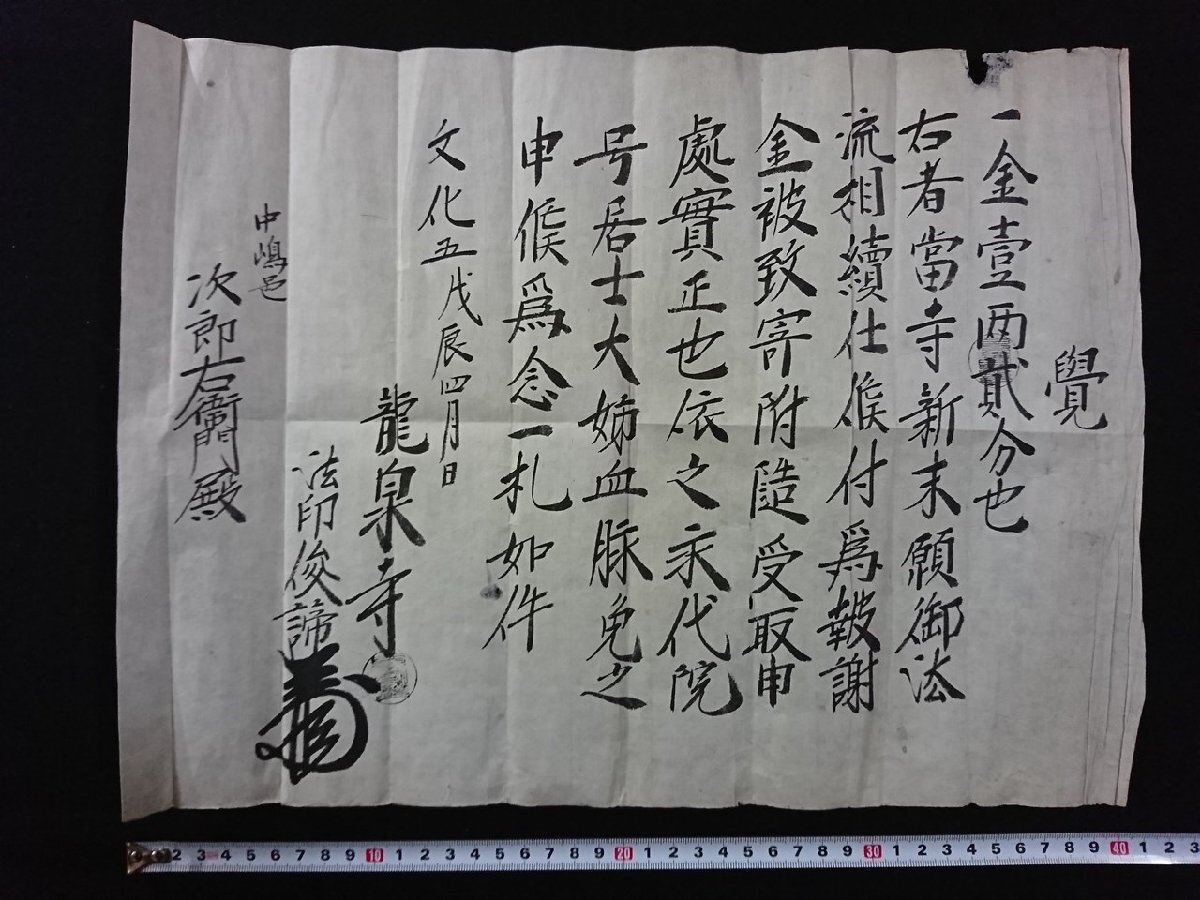 覺
一金壹両貳分也
右者當寺新末願御法
流相續仕候付為報謝
金被致寄附慥受取申
處實正也依之永代院
号居士大姉血脉免之
申候為念一札如件
文化五戊辰四月日
龍泉寺
法印俊諦
中嶋邑
次郎右衛門殿
2 3 4 5 6 7 8 9 10 1 2 3 4 5 6 7 8 9 20 1 2 3 4 5 6 7 8 9 30 1 2 3 4 5 6 7 8 9 40 1 2 3